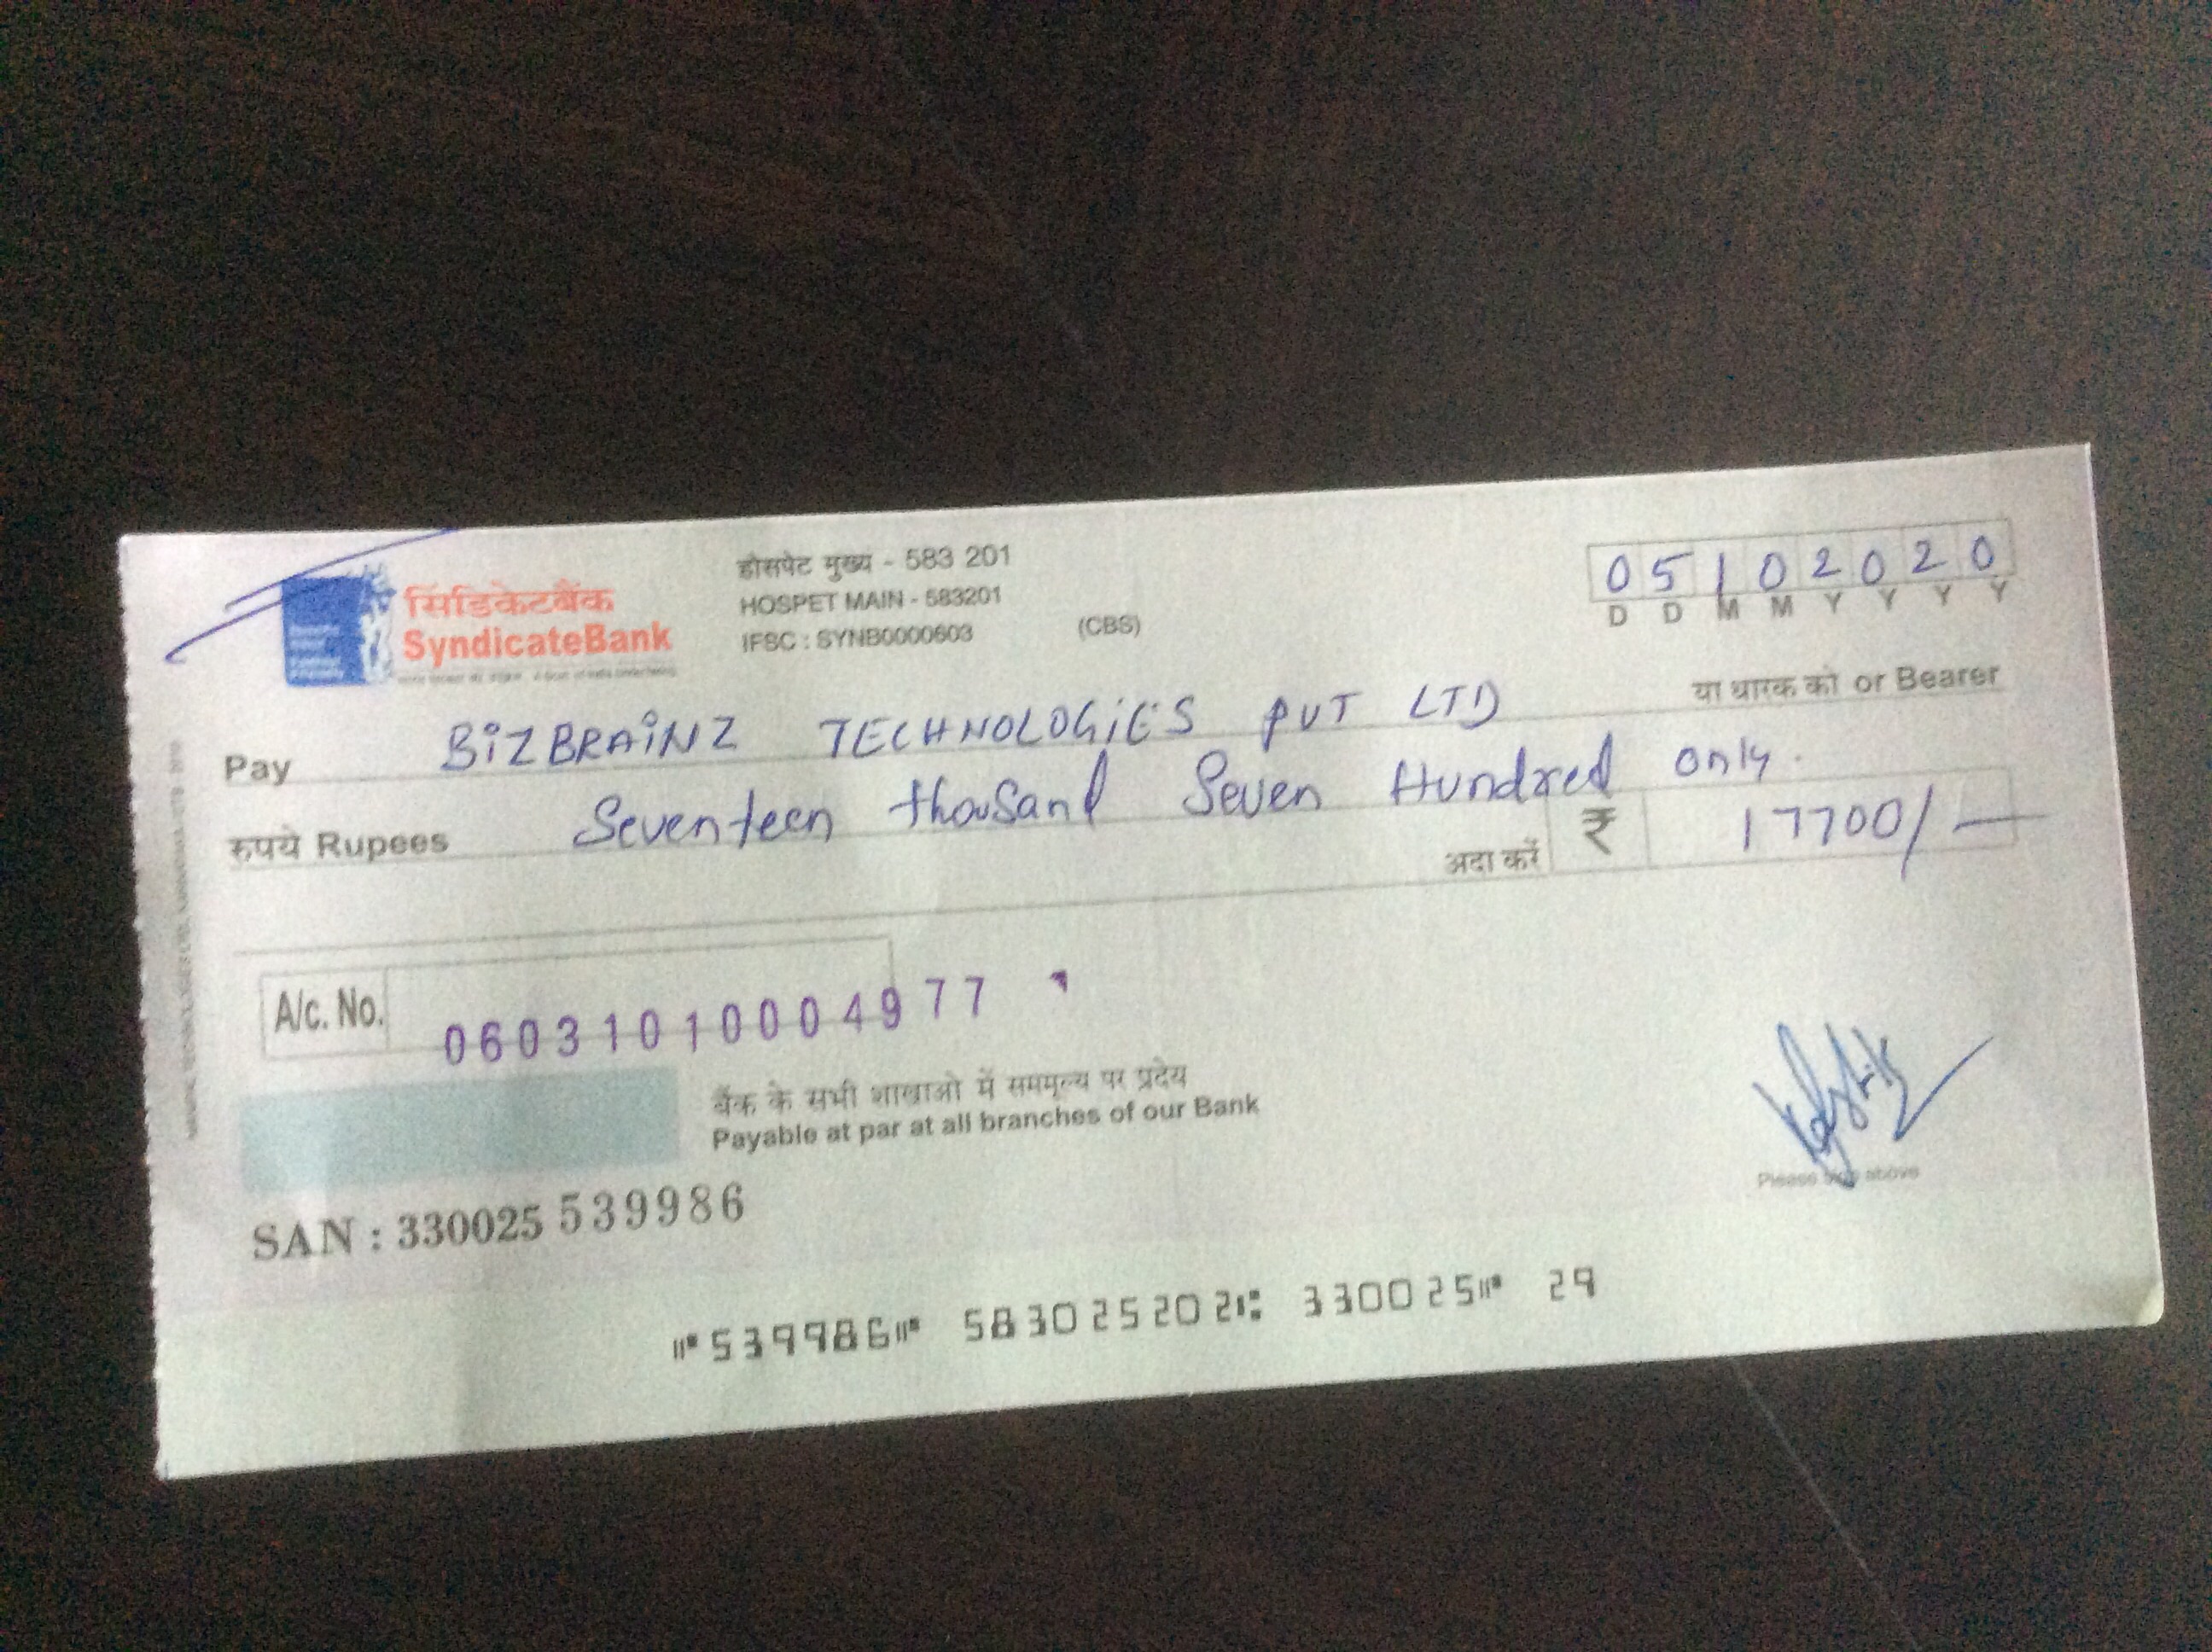 सिंडिकेटबैंक
SyndicateBank
होसपेट मुख्य - 583 201
HOSPET MAIN - 583201
IFSC : SYNB0000603 (CBS)
05102020
D D M M Y Y Y Y
Pay BiZBRAiNZ TECHNOLOGiES PVT LTD या धारक को or Bearer
रुपये Rupees Seventeen thousand Seven Hundred only.
अदा करें ₹ 17700/-
A/c. No. 06031010004977
बैंक के सभी शाखाओ में सममूल्य पर प्रदेय
Payable at par at all branches of our Bank
SAN : 330025 539986
Please sign above
⑈539986⑈ 583025202⑆ 330025⑈ 29